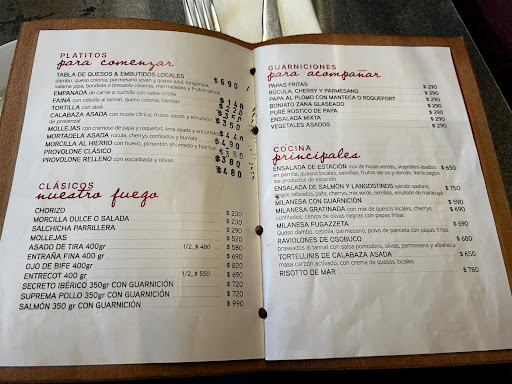 PLATITOS
para comenzar
TABLA DE QUESOS & EMBUTIDOS LOCALES $ 690
dambo, queso colonia, parmesano joven y queso azul, longaniza,
salame pipa, bondiola o bresaola caseras, mermeladas y frutos secos
EMPANADA de carne a cuchillo con salsa criolla $ 140
FAINÁ con cebolla al tannat, queso colonia, hierbas
TORTILLA con alioli
CALABAZA ASADA con ricota cítrica, frutos secos y emulsión $ 350
de provenzal
MOLLEJAS con cremoso de papa y roquefort, lima asada y verduras $ 440
MORTADELA ASADA rúcula, cherrys confitados y burrata
MORCILLA AL HIERRO con huevo, pimentón ahumado y hierbas
PROVOLONE CLÁSICO
PROVOLONE RELLENO con escalibada y olivas $ 480
CLÁSICOS
nuestro fuego
CHORIZO $ 230
MORCILLA DULCE O SALADA $ 230
SALCHICHA PARRILLERA $ 290
MOLLEJAS $ 520
ASADO DE TIRA 400gr 1/2_$ 480 $ 580
ENTRAÑA FINA 400 gr $ 690
OJO DE BIFE 400gr $ 820
ENTRECOT 400 gr 1/2_$ 550 $ 690
SECRETO IBÉRICO 350gr CON GUARNICIÓN $ 720
SUPREMA POLLO 350gr CON GUARNICIÓN $ 720
SALMÓN 350 gr CON GUARNICIÓN $ 990
GUARNICIONES
para acompañar
PAPAS FRITAS $ 290
RÚCULA, CHERRY Y PARMESANO $ 290
PAPA AL PLOMO CON MANTECA O ROQUEFORT $ 290
BONIATO ZANA GLASEADO $ 290
PURÉ RÚSTICO DE PAPA $ 290
ENSALADA MIXTA $ 290
VEGETALES ASADOS $ 290
COCINA
principales
ENSALADA DE ESTACIÓN mix de hojas verdes, vegetales asados $ 650
en parrilla, quesos locales, semillas, frutos secos y demás. Varíe según
los productos de estación
ENSALADA DE SALMÓN Y LANGOSTINOS salmón sashimi, $ 750
langostinos salteados, palta, cherrys, mix verde, semillas, emulsión de maracuyá
MILANESA CON GUARNICIÓN $ 590
MILANESA GRATINADA con mix de quesos locales, cherrys $ 690
confitados, ceniza de olivas negras con papas fritas
MILANESA FUGAZZETA $ 690
Queso dambo, cebolla, parmesano, polvo de panceta con papas fritas
RAVIOLONES DE OSOBUCO $ 680
braseados al tannat con salsa pomodoro, olivas, parmesano y albahaca
TORTELLINIS DE CALABAZA ASADA $ 650
masa carbón activado, con crema de quesos locales
RISOTTO DE MAR $ 780